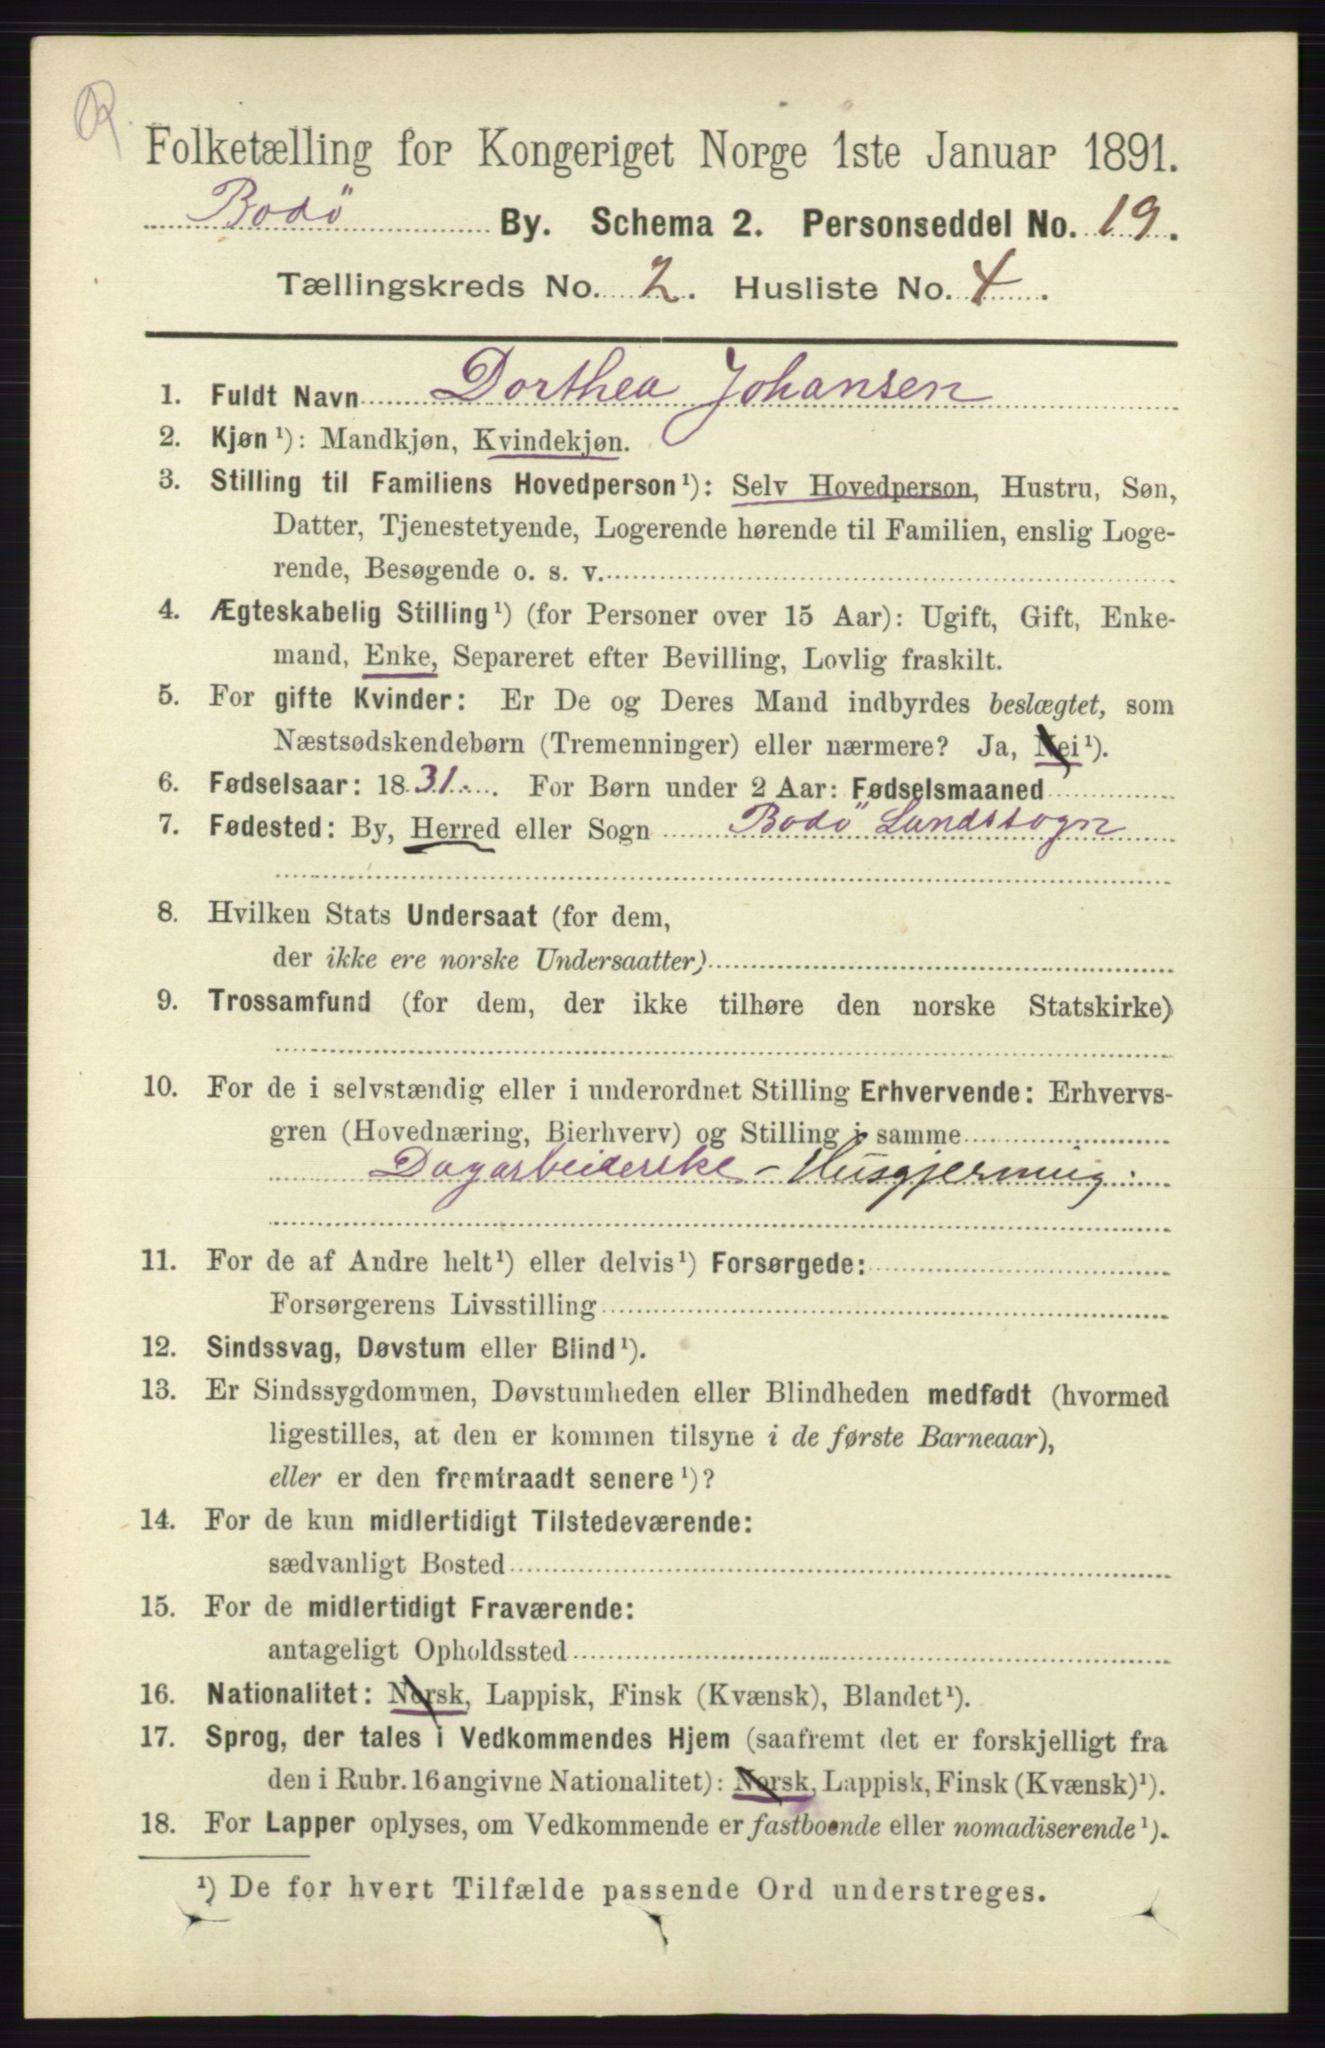 R.
Folketælling for Kongeriget Norge 1ste Januar 1891.
Bodö By. Schema 2. Personseddel No. 19.
Tællingskreds No. 2. Husliste No. 4.
1. Fuldt Navn Dorthea Johansen
2. Kjøn¹): Mandkjøn, Kvindekjøn.
3. Stilling til Familiens Hovedperson¹): Selv Hovedperson, Hustru, Søn,
Datter, Tjenestetyende, Logerende hørende til Familien, enslig Loge-
rende, Besøgende o. s. v.
4. Ægteskabelig Stilling¹) (for Personer over 15 Aar): Ugift, Gift, Enke-
mand, Enke, Separeret efter Bevilling, Lovlig fraskilt.
5. For gifte Kvinder: Er De og Deres Mand indbyrdes beslægtet, som
Næstsødskendebørn (Tremenninger) eller nærmere? Ja, Nei¹).
6. Fødselsaar: 1831. For Børn under 2 Aar: Fødselsmaaned
7. Fødested: By, Herred eller Sogn Bodö Landssogn
8. Hvilken Stats Undersaat (for dem,
der ikke ere norske Undersaatter)
9. Trossamfund (for dem, der ikke tilhøre den norske Statskirke)
10. For de i selvstændig eller i underordnet Stilling Erhvervende: Erhvervs-
gren (Hovednæring, Bierhverv) og Stilling i samme
Dagarbeiderske - Husgjerning.
11. For de af Andre helt¹) eller delvis¹) Forsørgede:
Forsørgerens Livsstilling
12. Sindssvag, Døvstum eller Blind¹).
13. Er Sindssygdommen, Døvstumheden eller Blindheden medfødt (hvormed
ligestilles, at den er kommen tilsyne i de første Barneaar),
eller er den fremtraadt senere¹)?
14. For de kun midlertidigt Tilstedeværende:
sædvanligt Bosted
15. For de midlertidigt Fraværende:
antageligt Opholdssted
16. Nationalitet: Norsk, Lappisk, Finsk (Kvænsk), Blandet¹).
17. Sprog, der tales i Vedkommendes Hjem (saafremt det er forskjelligt fra
den i Rubr. 16 angivne Nationalitet): Norsk, Lappisk, Finsk (Kvænsk)¹).
18. For Lapper oplyses, om Vedkommende er fastboende eller nomadiserende¹).
¹) De for hvert Tilfælde passende Ord understreges.